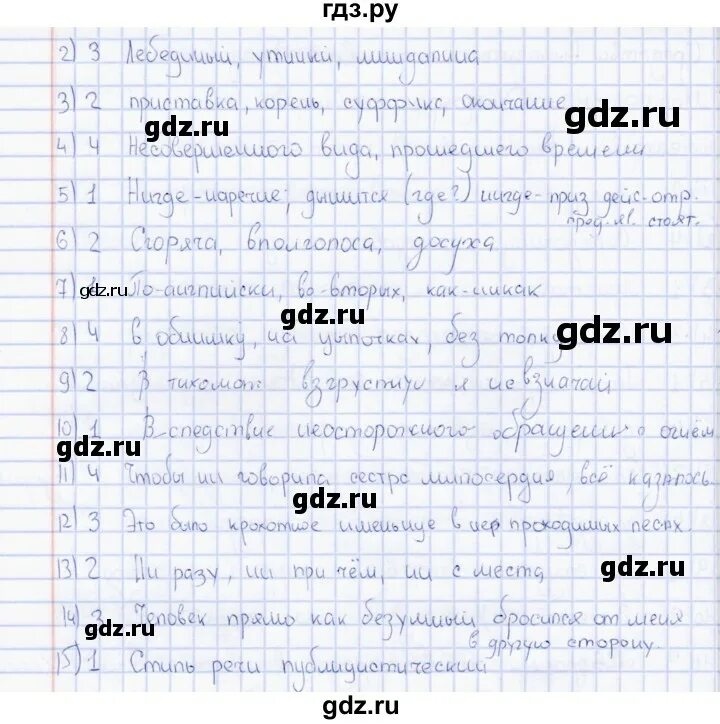 гдз.ру
2) 3 Лебединый, утиный, лишь
3) 2 приставка, корень, суффикс, окончание
gdz.ru gdz.ru
4) 4 Несовершенного вида, прошедшего времени
5) 1 Нигде-наречие; дышится (где?) нигде-приз дейс-отр.
пред-яв. стоят.
6) 2 Сгоряча, вполголоса, досуха
7) По-английски, во-вторых, как-никак
gdz.ru
gdz.ru gdz.ru
8) 4 в обнимку, на цыпочках, без толку
9) 2 В взгрустнул я не взначай
10) 1 В следствие неосторожного обращения с огнём
gdz.ru
11) 4 Чтобы ни говорила сестра милосердия, всё казалось
gdz.ru
12) 3 Это было крохотное именьице в непроходимых лесах.
13) 2 Ни разу, ни при чём, ни с места
gdz.ru
14) 3 Человек прямо как безумный бросился от меня
в другую сторону.
gdz.ru
15) 1 Стиль речи публицистический
gdz.ru